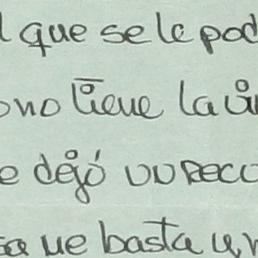 l que se le pod
ono tiene la ú
e dejó un reco
ue basta u